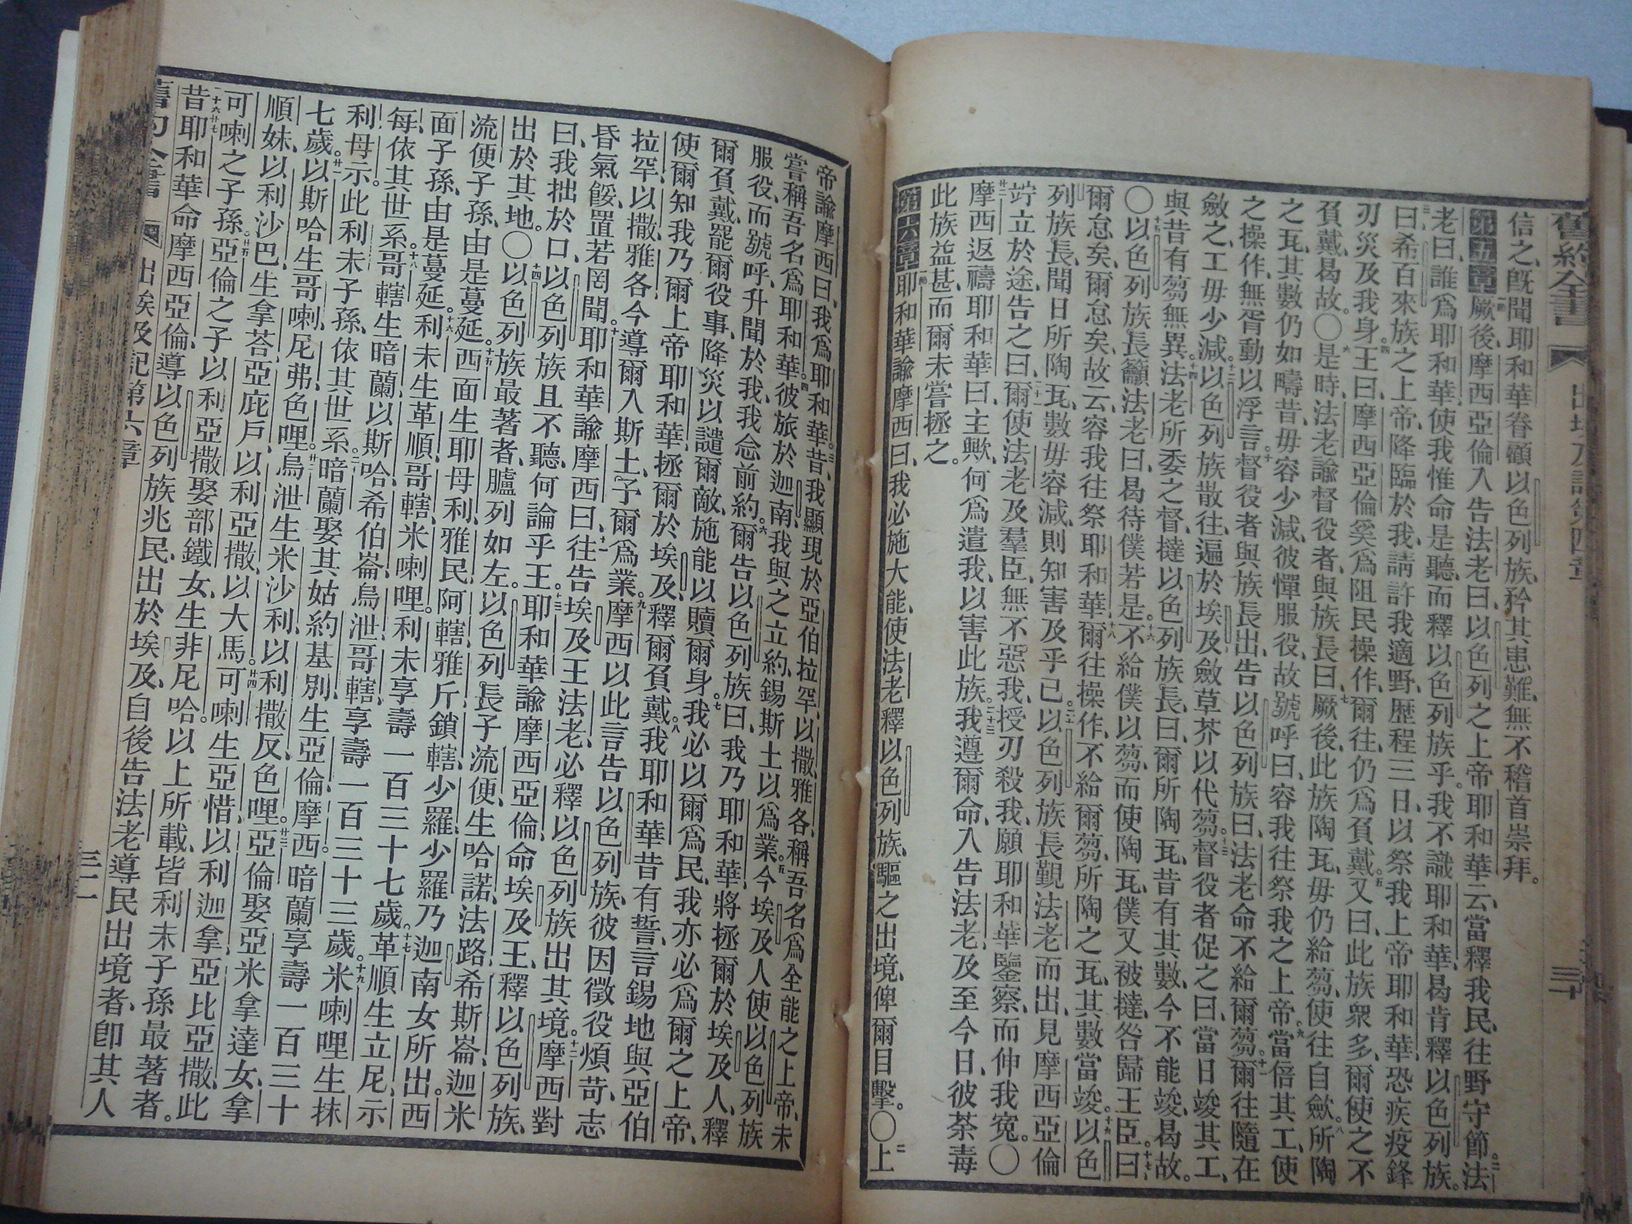 舊約全書 出埃及記第四章 三十
信之、旣聞耶和華眷顧以色列族、矜其患難、無不稽首崇拜。
第五章 一厥後摩西亞倫入告法老曰、以色列之上帝耶和華云、當釋我民、往野守節。二法
老曰、誰爲耶和華、使我惟命是聽、而釋以色列族乎、我不識耶和華、曷肯釋以色列族。
三曰、希百來族之上帝、降臨於我、請許我適野、歷程三日、以祭我上帝耶和華、恐疾疫鋒
刃災及我身。四王曰、摩西亞倫奚爲阻民操作、爾往仍爲負戴。五又曰、此族衆多、爾使之不
負戴、曷故。〇六是時法老諭督役者、與族長曰、七厥後此族陶瓦、毋仍給芻、使往自斂。八所陶
之瓦、其數仍如疇昔、毋容少減、彼憚服役、故號呼曰、容我往祭我之上帝。九當倍其工、使
之操作、無胥動以浮言。十督役者與族長出、告以色列族曰、法老命不給爾芻。十一爾往隨在
斂之、工毋少減。十二以色列族散往、遍於埃及、斂草芥以代芻。十三督役者促之曰、當日竣其工、
與昔有芻無異。十四法老所委之督、撻以色列族長、曰、爾所陶瓦、昔有其數、今不能竣、曷故。
〇十五以色列族長籲法老曰、曷待僕若是。十六不給僕以芻、而使陶瓦、僕又被撻、咎歸王臣。十七曰、
爾怠矣、爾怠矣、故云容我往祭耶和華。十八爾往操作、不給爾芻、所陶之瓦、其數當竣。十九以色
列族長聞日所陶瓦、數毋容減、則知害及乎己。二十以色列族長覲法老而出、見摩西亞倫
竚立於途。廿一告之曰、爾使法老及羣臣、無不惡我、授刃殺我、願耶和華鑒察、而伸我寃。〇
廿二摩西返禱耶和華曰、主歟、何爲遣我、以害此族。二十三我遵爾命、入告法老、及至今日、彼荼毒
此族益甚、而爾未嘗拯之。
第六章 一耶和華諭摩西曰、我必施大能、使法老釋以色列族、驅之出境、俾爾目擊。〇二上
帝諭摩西曰、我爲耶和華。三昔我顯現於亞伯拉罕、以撒、雅各、稱吾名爲全能之上帝、未
嘗稱吾名爲耶和華。四彼旅於迦南、我與之立約、錫斯土以爲業。五今埃及人使以色列族
服役、而號呼升聞於我、我念前約。六爾告以色列族曰、我乃耶和華、將拯爾於埃及人、釋
爾負戴、罷爾役事、降災以譴爾敵、施能以贖爾身。七我必以爾爲民、我亦必爲爾之上帝、
使爾知我乃爾上帝耶和華、拯爾於埃及、釋爾負戴。八我耶和華昔有誓言、錫地與亞伯
拉罕、以撒、雅各、今導爾入斯土、予爾爲業。九摩西以此言告以色列族、彼因徵役煩苛、志
昏氣餒、置若罔聞。十耶和華諭摩西曰、十一往告埃及王法老、必釋以色列族出其境。十二摩西對
曰、我拙於口、以色列族且不聽、何論乎王。十三耶和華諭摩西亞倫、命埃及王釋以色列族、
出於其地。〇十四以色列族最著者、臚列如左、以色列長子流便、生哈諾、法路、希斯崙、迦米、
流便子孫、由是蔓延。十五西面生耶母利、雅民、阿轄、雅斤、鎖轄、少羅、少羅乃迦南女所出、西
面子孫、由是蔓延。十六利未生革順、哥轄、米喇哩、利未享壽一百三十七歲。十七革順生立尼、示
每、依其世系。十八哥轄生暗蘭、以斯哈、希伯崙、烏泄、哥轄享壽一百三十三歲。十九米喇哩生抹
利、母示、此利未子孫、依其世系。二十暗蘭娶其姑約基別、生亞倫、摩西、暗蘭享壽一百三十
七歲。廿一以斯哈生哥喇、尼弗、色哩。廿二烏泄生米沙利、以利撒反、色哩。廿三亞倫娶亞米拿達女、拿
順妹、以利沙巴、生拿荅、亞庇戶、以利亞撒、以大馬。廿四可喇生亞惜、以利迦拿、亞比亞撒、此
可喇之子孫。廿五亞倫之子以利亞撒、娶部鐵女、生非尼哈、以上所載、皆利未子孫最著者。
二十六廿七昔耶和華命摩西亞倫、導以色列族兆民、出於埃及、自後告法老導民出境者、卽其人
舊約全書 出埃及記第六章 三十一